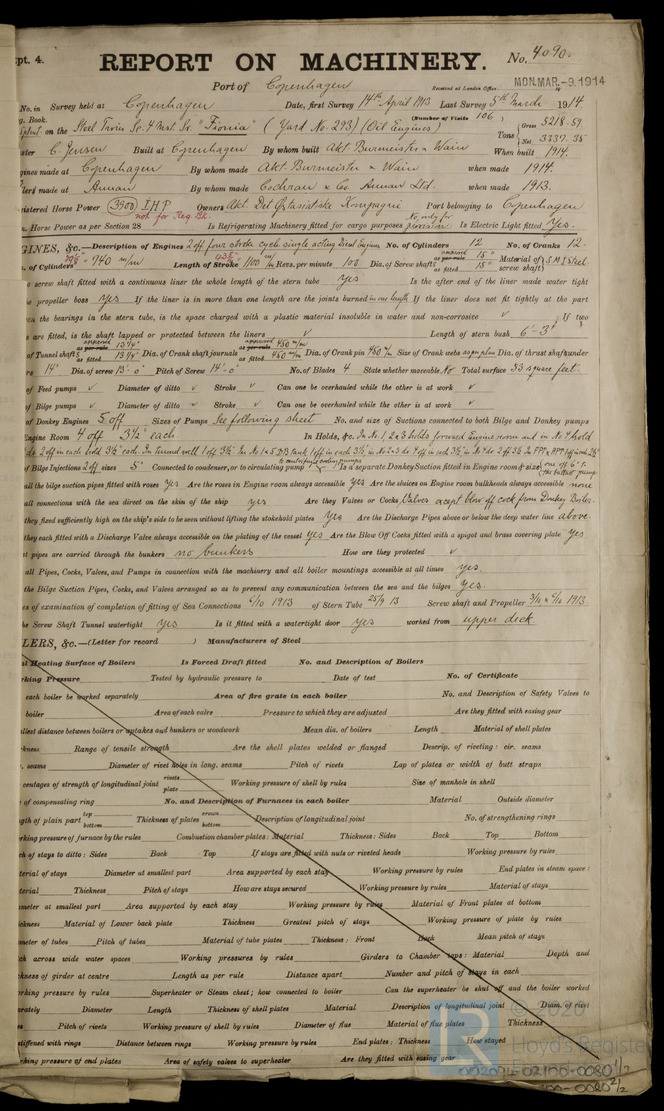 pt. 4. REPORT ON MACHINERY. No. 4090
Port of Copenhagen Received at London Office MON. MAR - 9. 1914
No. in Survey held at Copenhagen Date, first Survey 14th April 1913 Last Survey 5th March 1914
g. Book. (Number of Visits 106)
on the Steel Twin Sr. 4 Mast. Sr. "Fionia" (Yard No. 293) (Oil Engines) Tons Gross 5218.59 Net 3337.35
ster C. Jensen Built at Copenhagen By whom built Akt. Burmeister & Wain When built 1914.
gines made at Copenhagen By whom made Akt Burmeister & Wain when made 1914.
lers made at Annan By whom made Cochran & Co. Annan Ltd. when made 1913.
istered Horse Power 3900 I.H.P Owners Akt. Det Østasiatiske Kompagni Port belonging to Copenhagen
not for Reg. Bk.
Horse Power as per Section 28 Is Refrigerating Machinery fitted for cargo purposes No, only for provision Is Electric Light fitted Yes.
GINES, &c.—Description of Engines 2 off four stroke cycle single acting Diesel Engines No. of Cylinders 12 No. of Cranks 12
of Cylinders 740 m/m Length of Stroke 1100 m/m Revs. per minute 100 Dia. of Screw shaft as per rule approved 15" as fitted 15" Material of screw shaft S.M. Steel
e screw shaft fitted with a continuous liner the whole length of the stern tube yes Is the after end of the liner made water tight
e propeller boss yes If the liner is in more than one length are the joints burned in one length If the liner does not fit tightly at the part
en the bearings in the stern tube, is the space charged with a plastic material insoluble in water and non-corrosive v If two
are fitted, is the shaft lapped or protected between the liners v Length of stern bush 6'-3"
of Tunnel shaft as per rule approved 13¼" as fitted 13¼" Dia. of Crank shaft journals as per rule approved 450 m/m as fitted 450 m/m Dia. of Crank pin 450 m/m Size of Crank webs as per plan Dia. of thrust shaft under
rs 14" Dia. of screw 13'-0" Pitch of Screw 14'-0" No. of Blades 4 State whether moveable No Total surface 53 square feet.
of Feed pumps v Diameter of ditto v Stroke v Can one be overhauled while the other is at work v
of Bilge pumps v Diameter of ditto v Stroke v Can one be overhauled while the other is at work v
of Donkey Engines 5 off Sizes of Pumps See following sheet No. and size of Suctions connected to both Bilge and Donkey pumps
Engine Room 4 off 3½" each In Holds, &c. In No. 1, 2 & 3 holds forward Engine room and in No 4 hold
of Bilge Injections 2 off sizes 5" Connected to condenser, or to circulating pump to centrifugal cooling pumps Is a separate Donkey Suction fitted in Engine room & size one off 6"
all the bilge suction pipes fitted with roses Yes Are the roses in Engine room always accessible Yes Are the sluices on Engine room bulkheads always accessible none
all connections with the sea direct on the skin of the ship yes Are they Valves or Cocks Valves except blow off cock from Donkey Boiler.
they fixed sufficiently high on the ship's side to be seen without lifting the stokehold plates Yes Are the Discharge Pipes above or below the deep water line above.
they each fitted with a Discharge Valve always accessible on the plating of the vessel Yes Are the Blow Off Cocks fitted with a spigot and brass covering plate Yes
t pipes are carried through the bunkers no bunkers How are they protected v
all Pipes, Cocks, Valves, and Pumps in connection with the machinery and all boiler mountings accessible at all times yes.
the Bilge Suction Pipes, Cocks, and Valves arranged so as to prevent any communication between the sea and the bilges Yes.
es of examination of completion of fitting of Sea Connections 6/10 1913 of Stern Tube 25/9 13 Screw shaft and Propeller 3/10 & 6/10 1913
he Screw Shaft Tunnel watertight yes Is it fitted with a watertight door yes worked from upper deck
LERS, &c.—(Letter for record ) Manufacturers of Steel
l Heating Surface of Boilers Is Forced Draft fitted No. and Description of Boilers
rking Pressure Tested by hydraulic pressure to Date of test No. of Certificate
each boiler be worked separately Area of fire grate in each boiler No. and Description of Safety Valves to
boiler Area of each valve Pressure to which they are adjusted Are they fitted with easing gear
llest distance between boilers or uptakes and bunkers or woodwork Mean dia. of boilers Length Material of shell plates
kness Range of tensile strength Are the shell plates welded or flanged Descrip. of riveting: cir. seams
. seams Diameter of rivet holes in long. seams Pitch of rivets Lap of plates or width of butt straps
centages of strength of longitudinal joint rivets plate Working pressure of shell by rules Size of manhole in shell
of compensating ring No. and Description of Furnaces in each boiler Material Outside diameter
gth of plain part top bottom Thickness of plates crown bottom Description of longitudinal joint No. of strengthening rings
rking pressure of furnace by the rules Combustion chamber plates: Material Thickness: Sides Back Top Bottom
ch of stays to ditto: Sides Back Top If stays are fitted with nuts or riveted heads Working pressure by rules
terial of stays Diameter at smallest part Area supported by each stay Working pressure by rules End plates in steam space:
terial Thickness Pitch of stays How are stays secured Working pressure by rules Material of stays
meter at smallest part Area supported by each stay Working pressure by rules Material of Front plates at bottom
ickness Material of Lower back plate Thickness Greatest pitch of stays Working pressure of plate by rules
meter of tubes Pitch of tubes Material of tube plates Thickness: Front Back Mean pitch of stays
ch across wide water spaces Working pressures by rules Girders to Chamber tops: Material Depth and
kness of girder at centre Length as per rule Distance apart Number and pitch of stays in each
rking pressure by rules Superheater or Steam chest; how connected to boiler Can the superheater be shut off and the boiler worked
arately Diameter Length Thickness of shell plates Material Description of longitudinal joint Diam. of rivet
s Pitch of rivets Working pressure of shell by rules Diameter of flue Material of flue plates Thickness
stiffened with rings Distance between rings Working pressure by rules End plates: Thickness How stayed
rking pressure of end plates Area of safety valves to superheater Are they fitted with easing gear
LR © 2020 Lloyd's Register